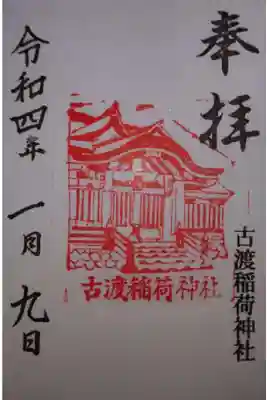 奉拝
古渡稲荷神社
古渡稲荷神社
令和四年一月九日